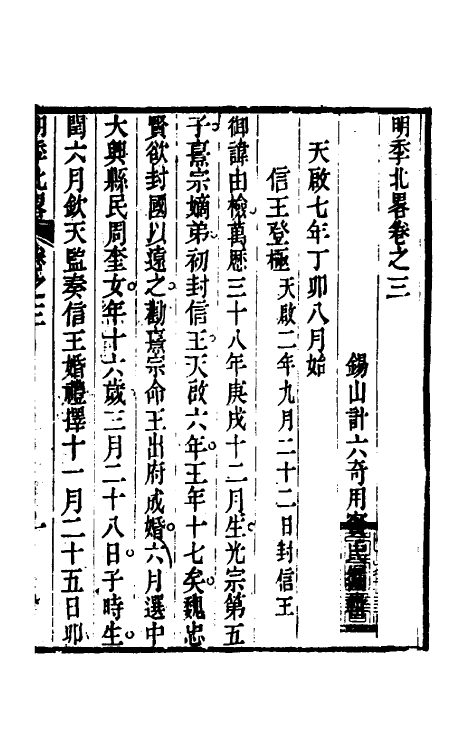 明季北畧卷之三
錫山計六奇用賓氏編輯
天啟七年丁卯八月始
信王登極 天啟二年九月二十二日封信王
御諱由檢萬曆三十八年庚戌十二月生光宗第五
子熹宗嫡弟初封信王天啟六年王年十七矣魏忠
賢欲封國以遠之勸熹宗命王出府成婚六月選中
大興縣民周奎女年十六歲三月二十八日子時生
閏六月欽天監奏信王婚禮擇十一月二十五日卯
明季北畧 卷之三 一